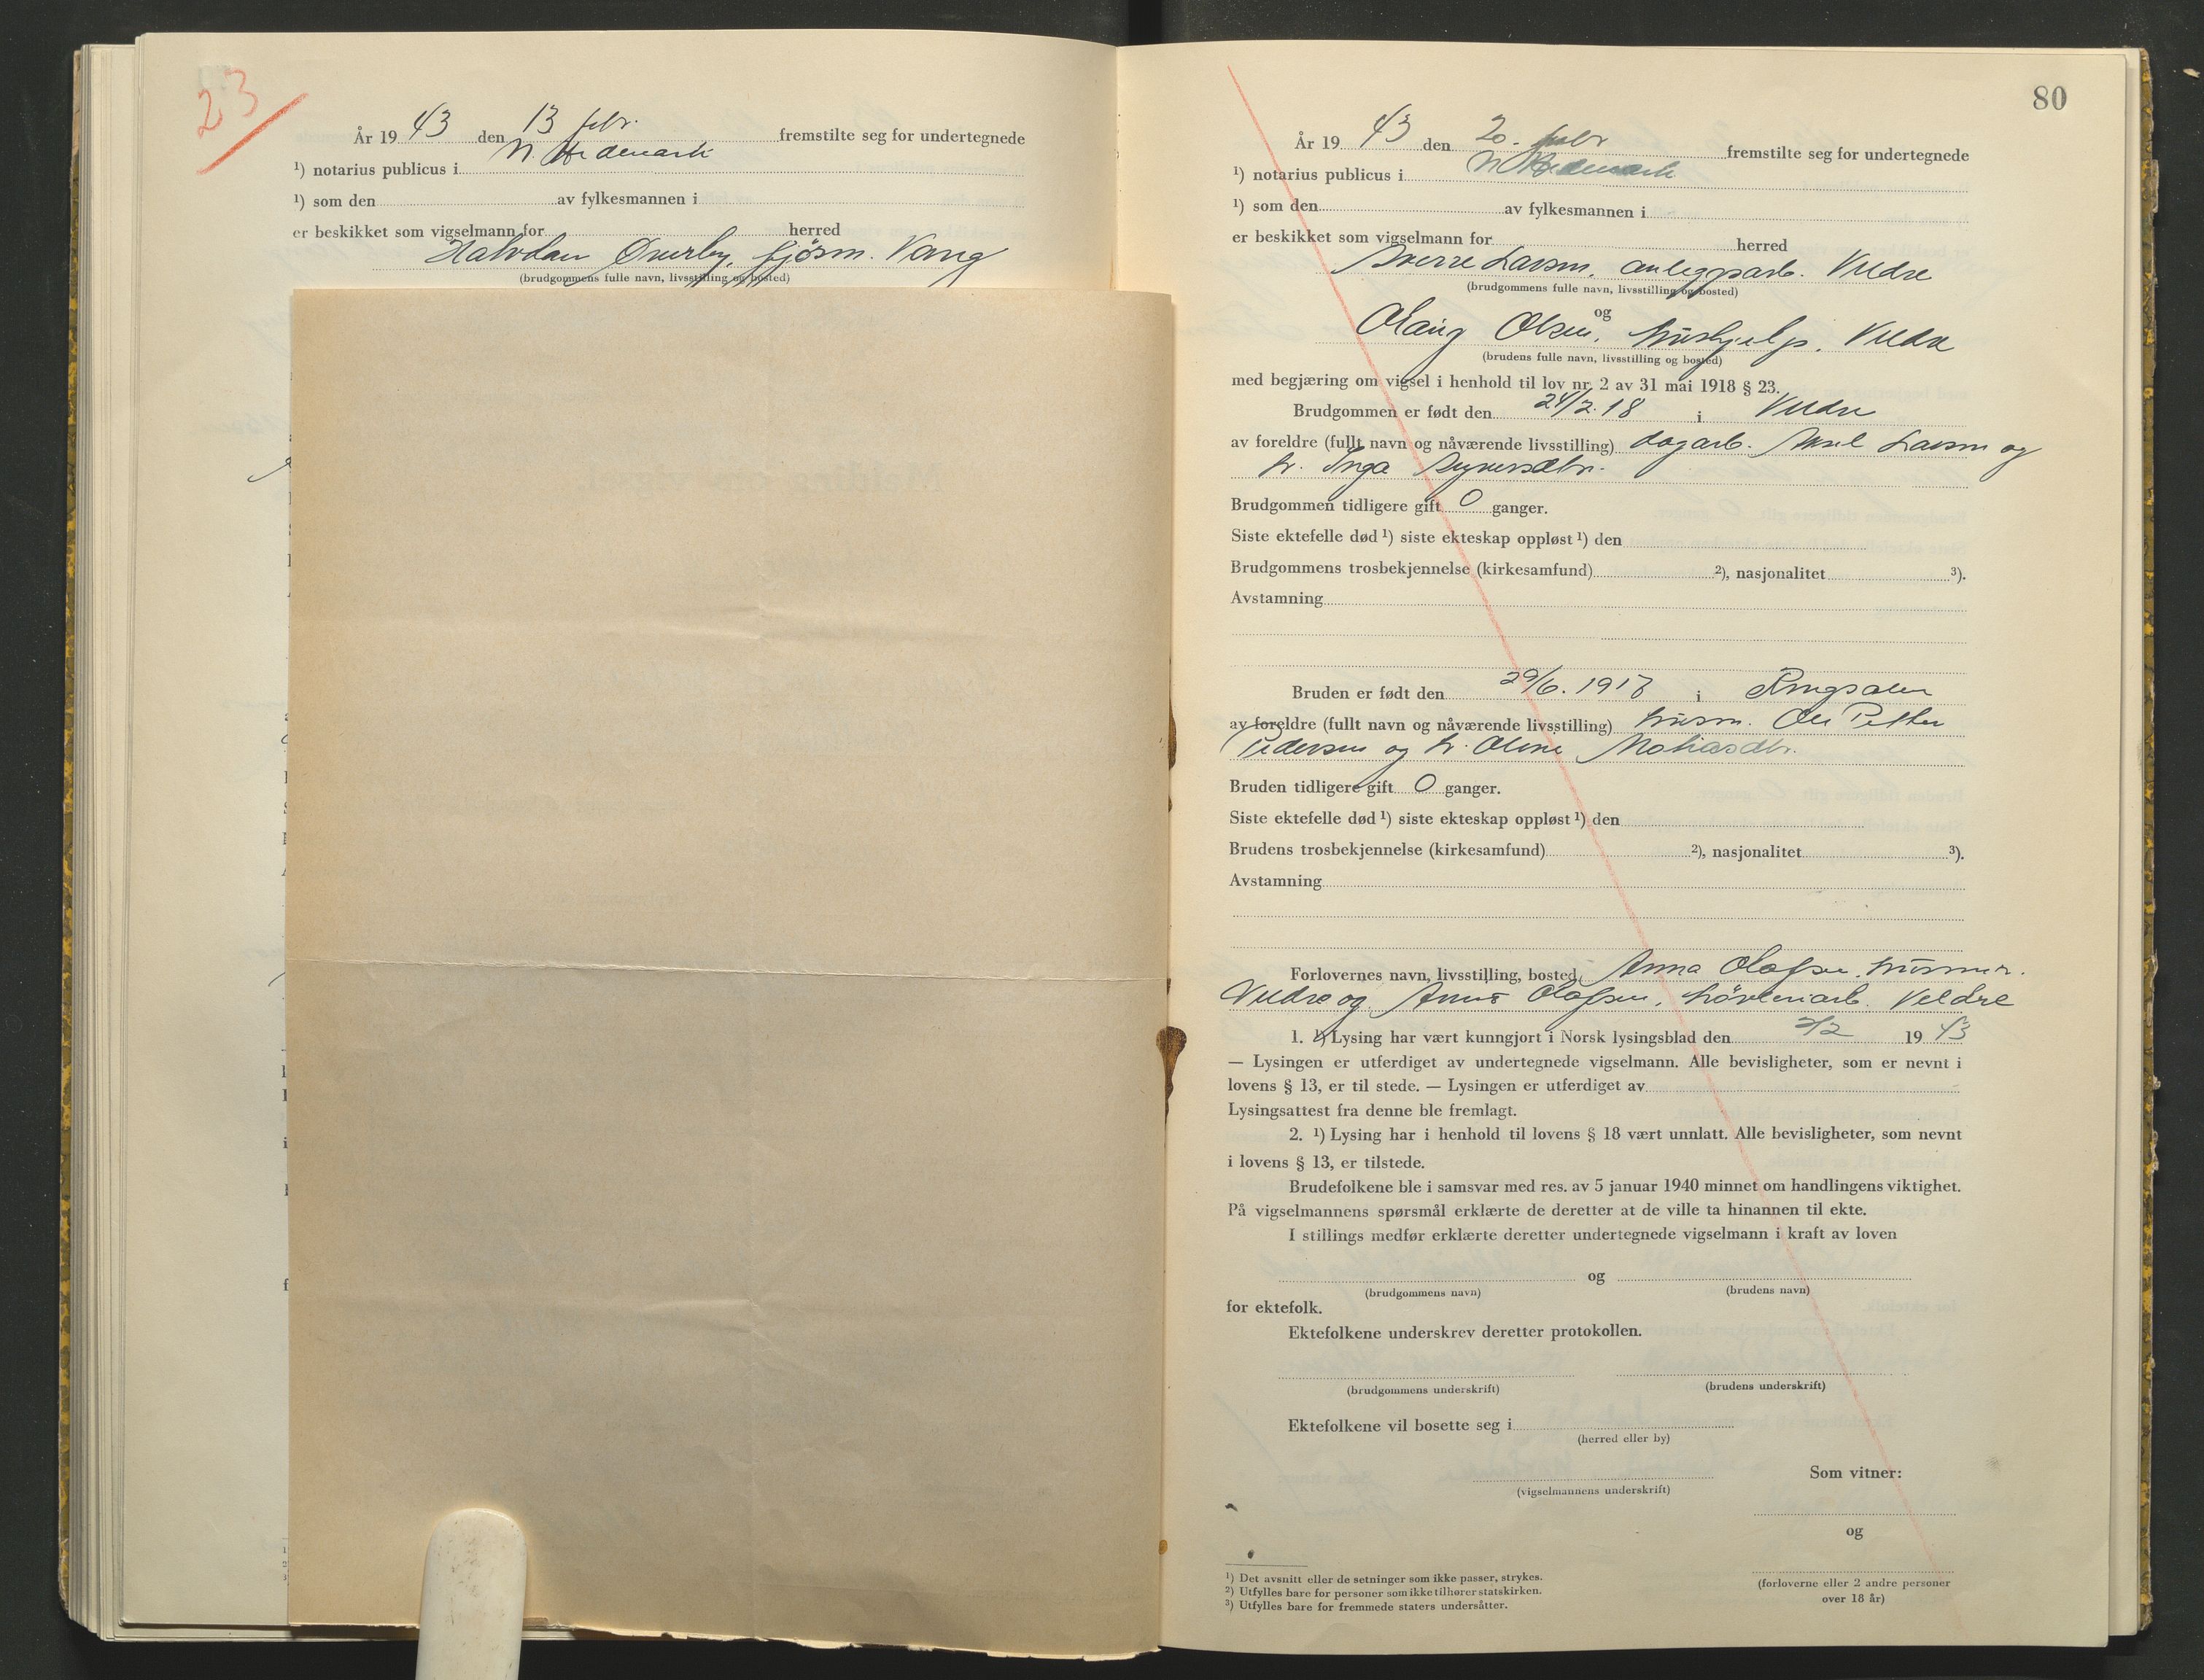 23
År 19 43 den 13 febr. fremstilte seg for undertegnede
¹) notarius publicus i N. Hedemark
¹) som den av fylkesmannen i
er beskikket som vigselmann for herred
Halvdan Øverby, fjösm. Vang
(brudgommens fulle navn, livsstilling og bosted)
80
År 19 43 den 20. febr fremstilte seg for undertegnede
¹) notarius publicus i N. Hedemark
¹) som den av fylkesmannen i
er beskikket som vigselmann for herred
Sverre Larsen, anleggsarb. Veldre
(brudgommens fulle navn, livsstilling og bosted)
og
Olaug Olsen, hushjelp. Veldre
(brudens fulle navn, livsstilling og bosted)
med begjæring om vigsel i henhold til lov nr. 2 av 31 mai 1918 § 23.
Brudgommen er født den 24/2.18 i Veldre
av foreldre (fullt navn og nåværende livsstilling) dagarb. Aksel Larsen og
h. Inga
Brudgommen tidligere gift 0 ganger.
Siste ektefelle død ¹) siste ekteskap oppløst ¹) den
Brudgommens trosbekjennelse (kirkesamfund) ²), nasjonalitet ³).
Avstamning
Bruden er født den 29/6. 1918 i Ringsaker
av foreldre (fullt navn og nåværende livsstilling) husm. Ole Petter
Pedersen og h. Oline Matiasdtr.
Bruden tidligere gift 0 ganger.
Siste ektefelle død ¹) siste ekteskap oppløst ¹) den
Brudens trosbekjennelse (kirkesamfund) ²), nasjonalitet ³).
Avstamning
Forlovernes navn, livsstilling, bosted Anna Olafsen,
Veldre og Olafsen, Veldre
1. ¹) Lysing har vært kunngjort i Norsk lysingsblad den 2/2 19 43
— Lysingen er utferdiget av undertegnede vigselmann. Alle bevisligheter, som er nevnt i
lovens § 13, er til stede. — Lysingen er utferdiget av
Lysingsattest fra denne ble fremlagt.
2. ¹) Lysing har i henhold til lovens § 18 vært unnlatt. Alle bevisligheter, som nevnt
i lovens § 13, er tilstede.
Brudefolkene ble i samsvar med res. av 5 januar 1940 minnet om handlingens viktighet.
På vigselmannens spørsmål erklærte de deretter at de ville ta hinannen til ekte.
I stillings medfør erklærte deretter undertegnede vigselmann i kraft av loven
og
(brudgommens navn) (brudens navn)
for ektefolk.
Ektefolkene underskrev deretter protokollen.
(brudgommens underskrift) (brudens underskrift)
Ektefolkene vil bosette seg i
(herred eller by)
Som vitner:
(vigselmannens underskrift)
og
¹) Det avsnitt eller de setninger som ikke passer, strykes.
²) Utfylles bare for personer som ikke tilhører statskirken.
³) Utfylles bare for fremmede staters undersåtter.
(forloverne eller 2 andre personer
over 18 år)